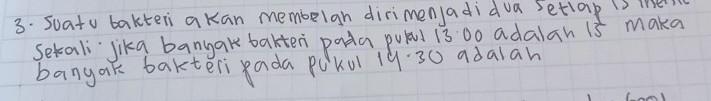 3. Suatu bakteri akan membelah diri menjadi dua setiap 15
Sekali. Jika banyak bakteri pada pukul 13.00 adalah 15 maka
banyak bakteri pada pukul 14.30 adalah